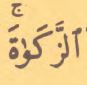 ٱلزَّكَوٰةَۚ